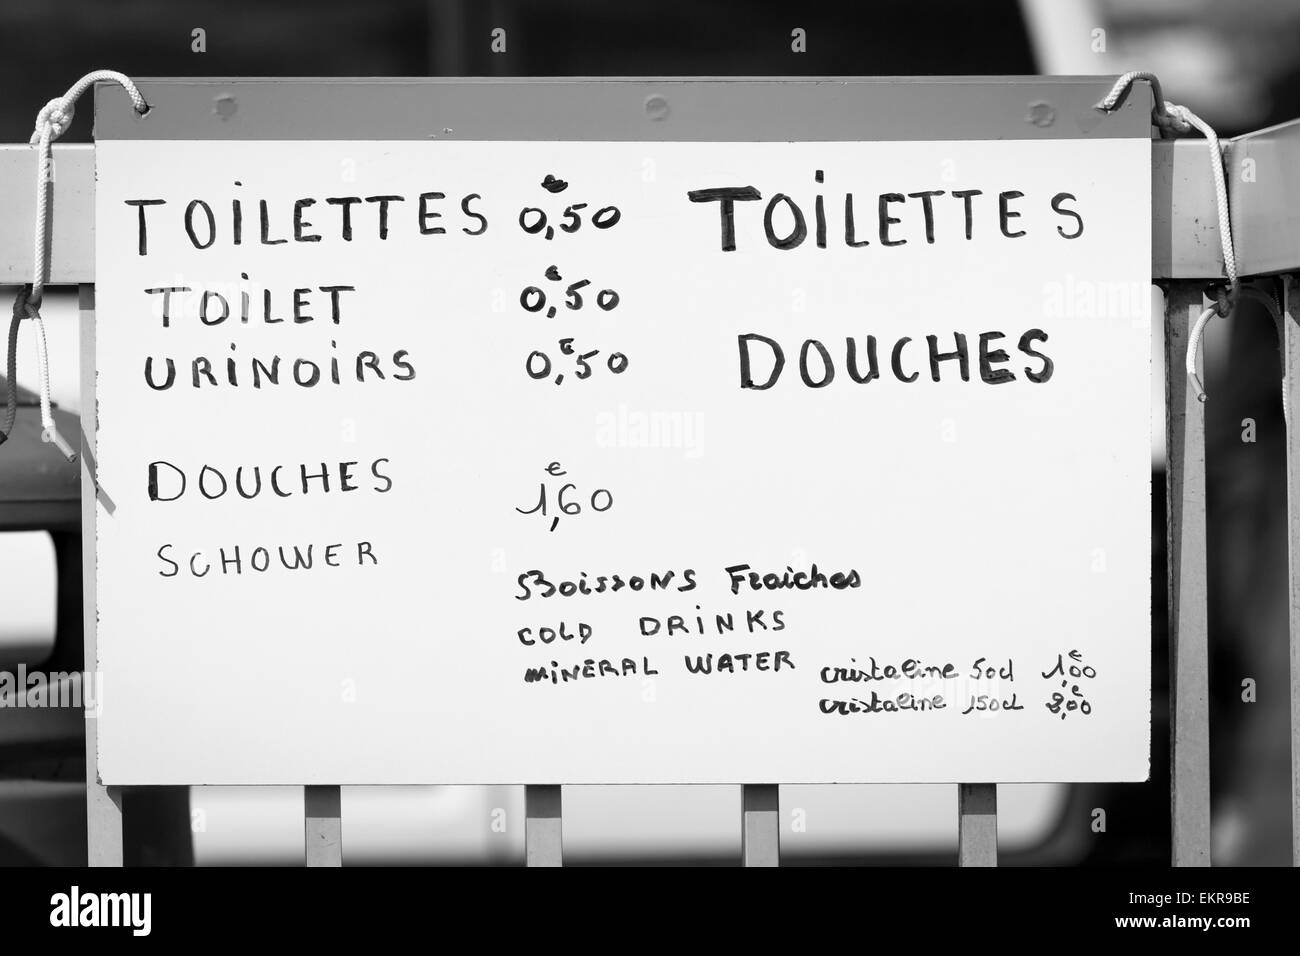 TOILETTES 0,50 €
TOILET 0,50 €
URINOIRS 0,50 €
DOUCHES 1,60 €
SCHOWER
TOILETTES
DOUCHES
Boissons Fraiches
COLD DRINKS
MINERAL WATER
cristaline 50cl 1,00 €
cristaline 150cl €
alamy
a
alamy stock photo
EKR9BE
www.alamy.com